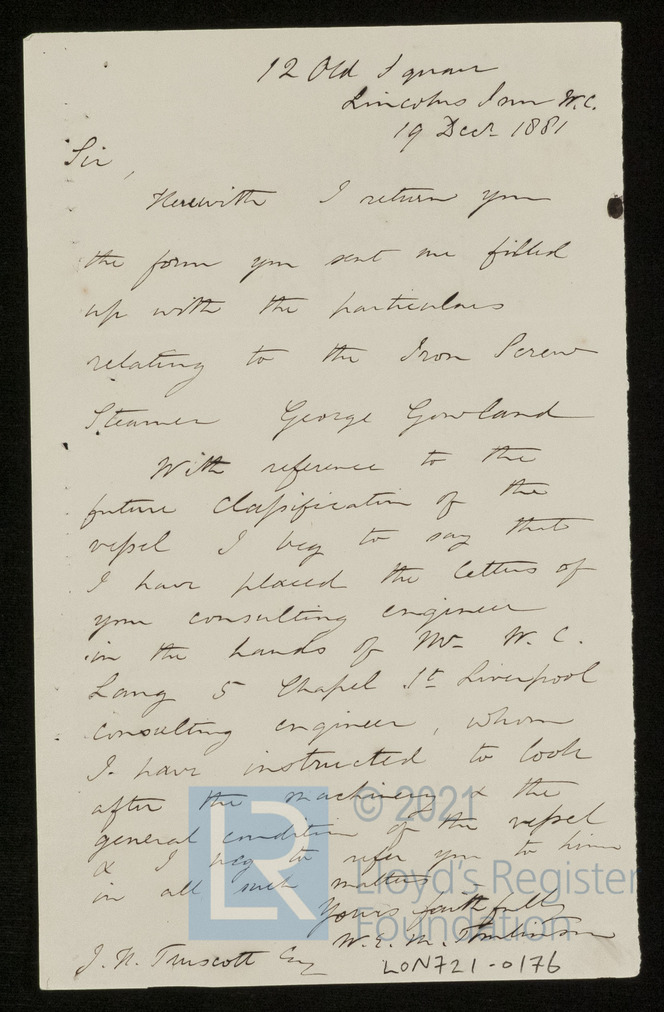 12 Old Square
Lincolns Inn W.C.
19 Decr 1881
Sir,
Herewith I return you
the form you sent me filled
up with the particulars
relating to the Iron Screw
Steamer George Gowland
With reference to the
future classification of the
vessel I beg to say that
I have placed the letters of
your consulting engineer
in the hands of Mr W. C.
Lang 5 Chapel St Liverpool
consulting engineer, whom
I have instructed to look
after the machinery & the
general condition of the vessel
& I beg to refer you to him
in all such matters
Yours faithfully
W. E. M. Tomlinson
J. N. Truscott Esq
LON721-0176
LR
© 2021
Lloyd's Register
Foundation